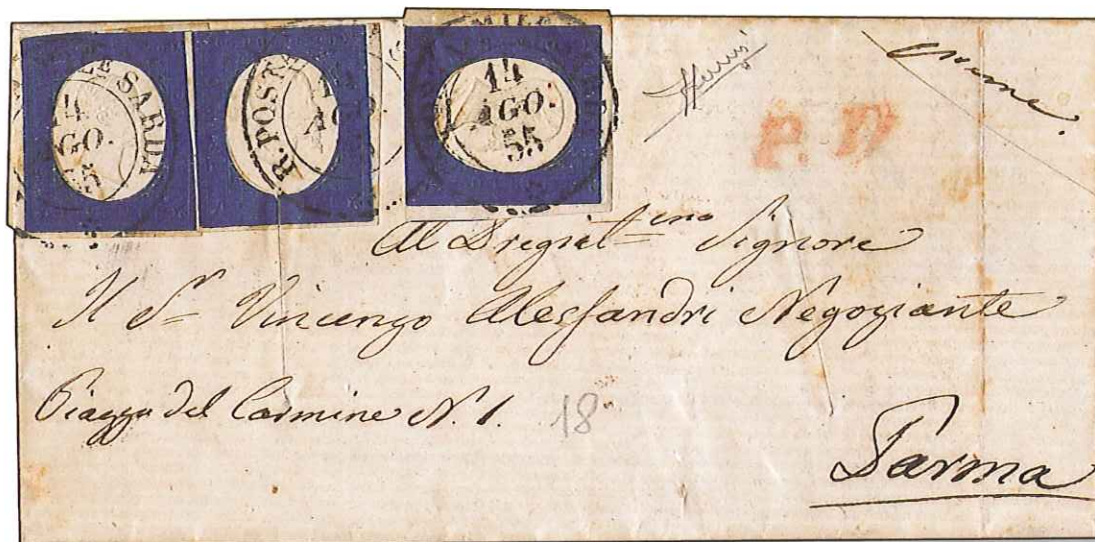 LE SARDA
14
AGO.
55
R. POSTE
A
MILE
14
AGO.
55
P. D
Al Pregiat.mo Signore
Il Sr. Vincenzo Alessandri Negoziante
Piazza del Carmine N. 1.
18
Parma